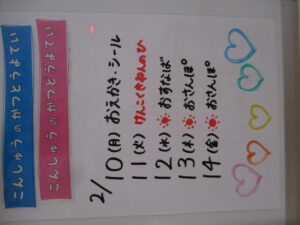 こんしゅうのかつどうよてい
こんしゅうのかつどうよてい
2/10(月)おえかき・シール
11(火)けんこくきねんのひ
12(水)おすなば
13(木)おさんぽ
14(金)おさんぽ